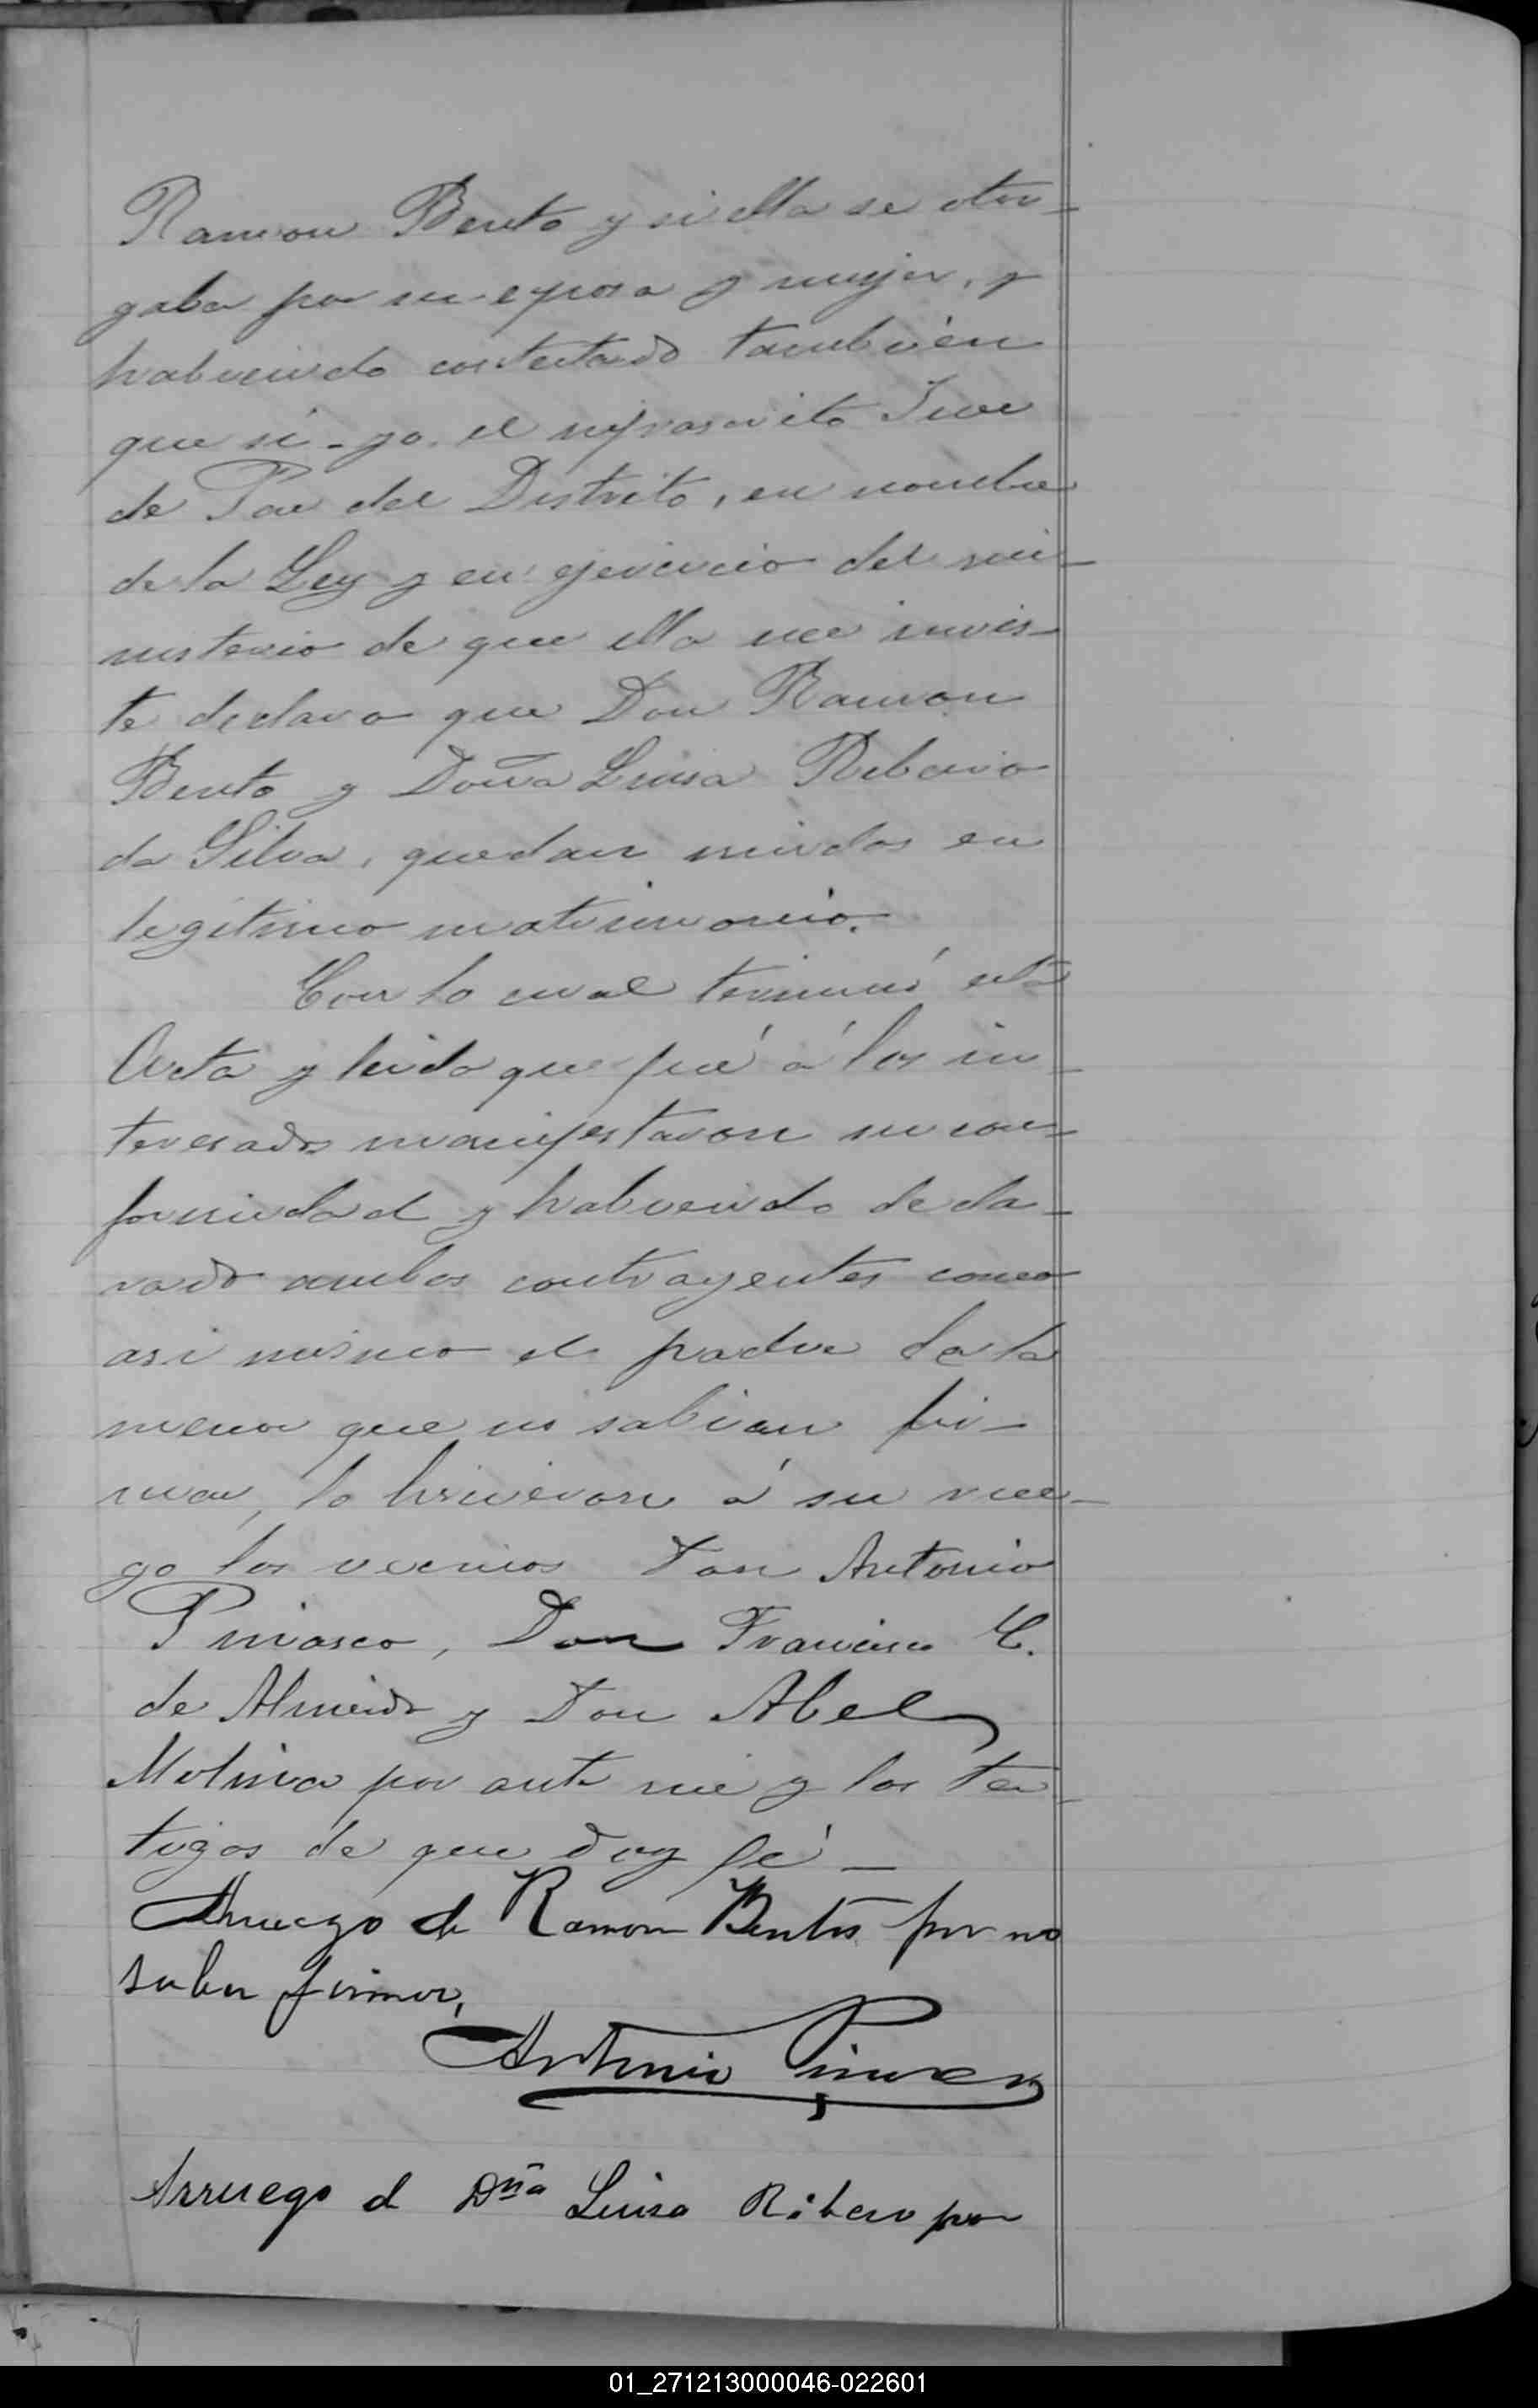 Ramon Bento y si ella se otor-
gaba por su esposa y mujer, y
habiendo contestado también
que sí - yo el infrascrito Juez
de Paz del Distrito, en nombre
de la Ley y en ejercicio del mi-
nisterio de que ella me invis-
te declaro que Don Ramon
Bento y Doña Luisa Ribeiro
da Silva, quedan unidos en
legítimo matrimonio.
Con lo cual terminó esta
Acta y leida que fué á los in-
teresados manifestaron su con-
formidad y habiendo decla-
rado ambos contrayentes como
asi mismo el padre de la
menor que no sabian fir-
mar, lo hicieron á su rue-
go los vecinos Don Antonio
Pinasco, Don Francisco C.
de Almeida y Don Abel
Molina por ante mi y los tes-
tigos de que doy fé -
Arruego de Ramon Bentos por no
saber firmar,
Antonio Pinasco
Arruego d Dña Luisa Ribero por
01_271213000046-022601